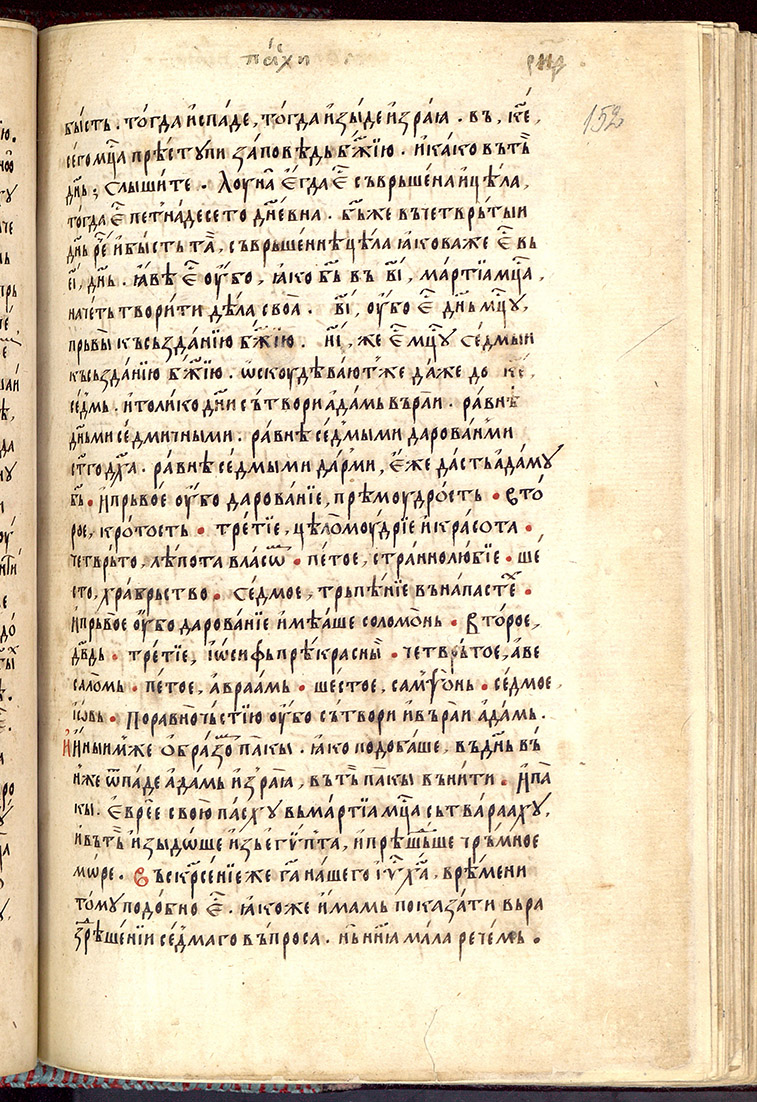 па́схи
рнд
152
бы́сть. тогда̀ и҆спа́де, тогда̀ и҆зы́де и҆зра́ꙗ. въ, к҃е,
сего̀ мцⷭ҇а прѣстꙋпи за́повѣдь бж҃їю. и҆ ка́ко въ тъ̏
дн҃ь; слы́шите. Лоуна̀ є҆гда̀ є҆ⷭ҇ съврьше́на и҆ цѣ́ла,
тогда̀ є҆ⷭ҇ петна́десето дн҃е́вна. бы́ⷭ҇ же въ четврь́тыи
дн҃ь рⷱ҇е́ и҆ бы́сть та́ⷦ҇, съврьше́ннѣ цѣ́ла ꙗ҆ково́ же є҆ⷭ҇ вь
є҃і, дн҃ь. ꙗ҆́вѣ є҆ⷭ҇ оу҆̀бо, ꙗ҆́ко бг҃ъ въ в҃і, ма́ртїа мцⷭ҇а,
наче́ть твори́ти дѣ́ла своꙗ̀. в҃і, оу҆́бо є҆ⷭ҇ дн҃ь мцⷭ҇ꙋ,
прьвы́и къ създа́нїю бж҃їю. н҃і, же є҆ⷭ҇ мцⷭ҇ꙋ се́дмыи
къ създа́нїю бж҃їю. ѡ҆скоудѣва́ют же да́же до к҃е,
се́дмь. и҆ толи́ко дн҃и сътвори̏ а҆да́мь въ ра́и. ра́внѣ
дн҃ьми се́дмичными. ра́внѣ се́дмыми дарова́нми
ст҃го дх҃а. ра́внѣ се́дмыми да́рми, є҆́же да́сть а҆да́мꙋ
бг҃ъ. И҆ прьвое оу҆́бо дарова́нїе, прѣмоу́дрость. Вто́
рое, кро́тость. тре́тїе, цѣло́моу́дрїе и҆ красота̀.
четврь́то, лѣпота̀ вла́сѡⷨ. пе́тое, стра́ннолюбїе. ше́
сто, хра́брьство. се́дмое, трьпе́нїе въ напа́стеⷯ.
И҆ прьво́е оу҆́бо дарова́нїе и҆мѣ́аше соломо́нь. Вто́рое,
дв҃дь. тре́тїе, і҆ѡ́сифь прѣкра́сныи. четврь́тое, а҆ве
сало́мь. пе́тое, а҆враа́мь. ше́стое, самѱо́нь. се́дмое,
і҆ѡ́вь. По ра́вноча́стїю оу҆́бо сътвори̏ и҆ въ ра́и а҆да́мь.
И҆ны́им же ѻ҆бразѡⷨ па́кы. ꙗ҆́ко подоба́ше, въ дн҃ь въ
и҆́же ѿпа́де а҆да́мь и҆з ра́ꙗ, въ тъ̏ па́кы въни́ти. И҆ па́
кы. є҆вре́е свою̀ па́схꙋ вь ма́ртїа мцⷭ҇а сьтва́раахꙋ,
и҆ въ тъ̏ и҆зыдѡ́ше и҆зь є҆гѵ́пта, и҆ прѣшь́дьше чрь́мное
мо́ре. Въскрⷭ҇се́нїе же га҃ на́шего і҆у҃ х҃а, врѣ́мени
то́мꙋ подо́бно є҆ⷭ҇. ꙗ҆́коже и҆́мамь показа́ти вь ра
зрѣше́нїи се́дмаго въпро́са. нъ нн҃ꙗ ма́ла рече́мь.